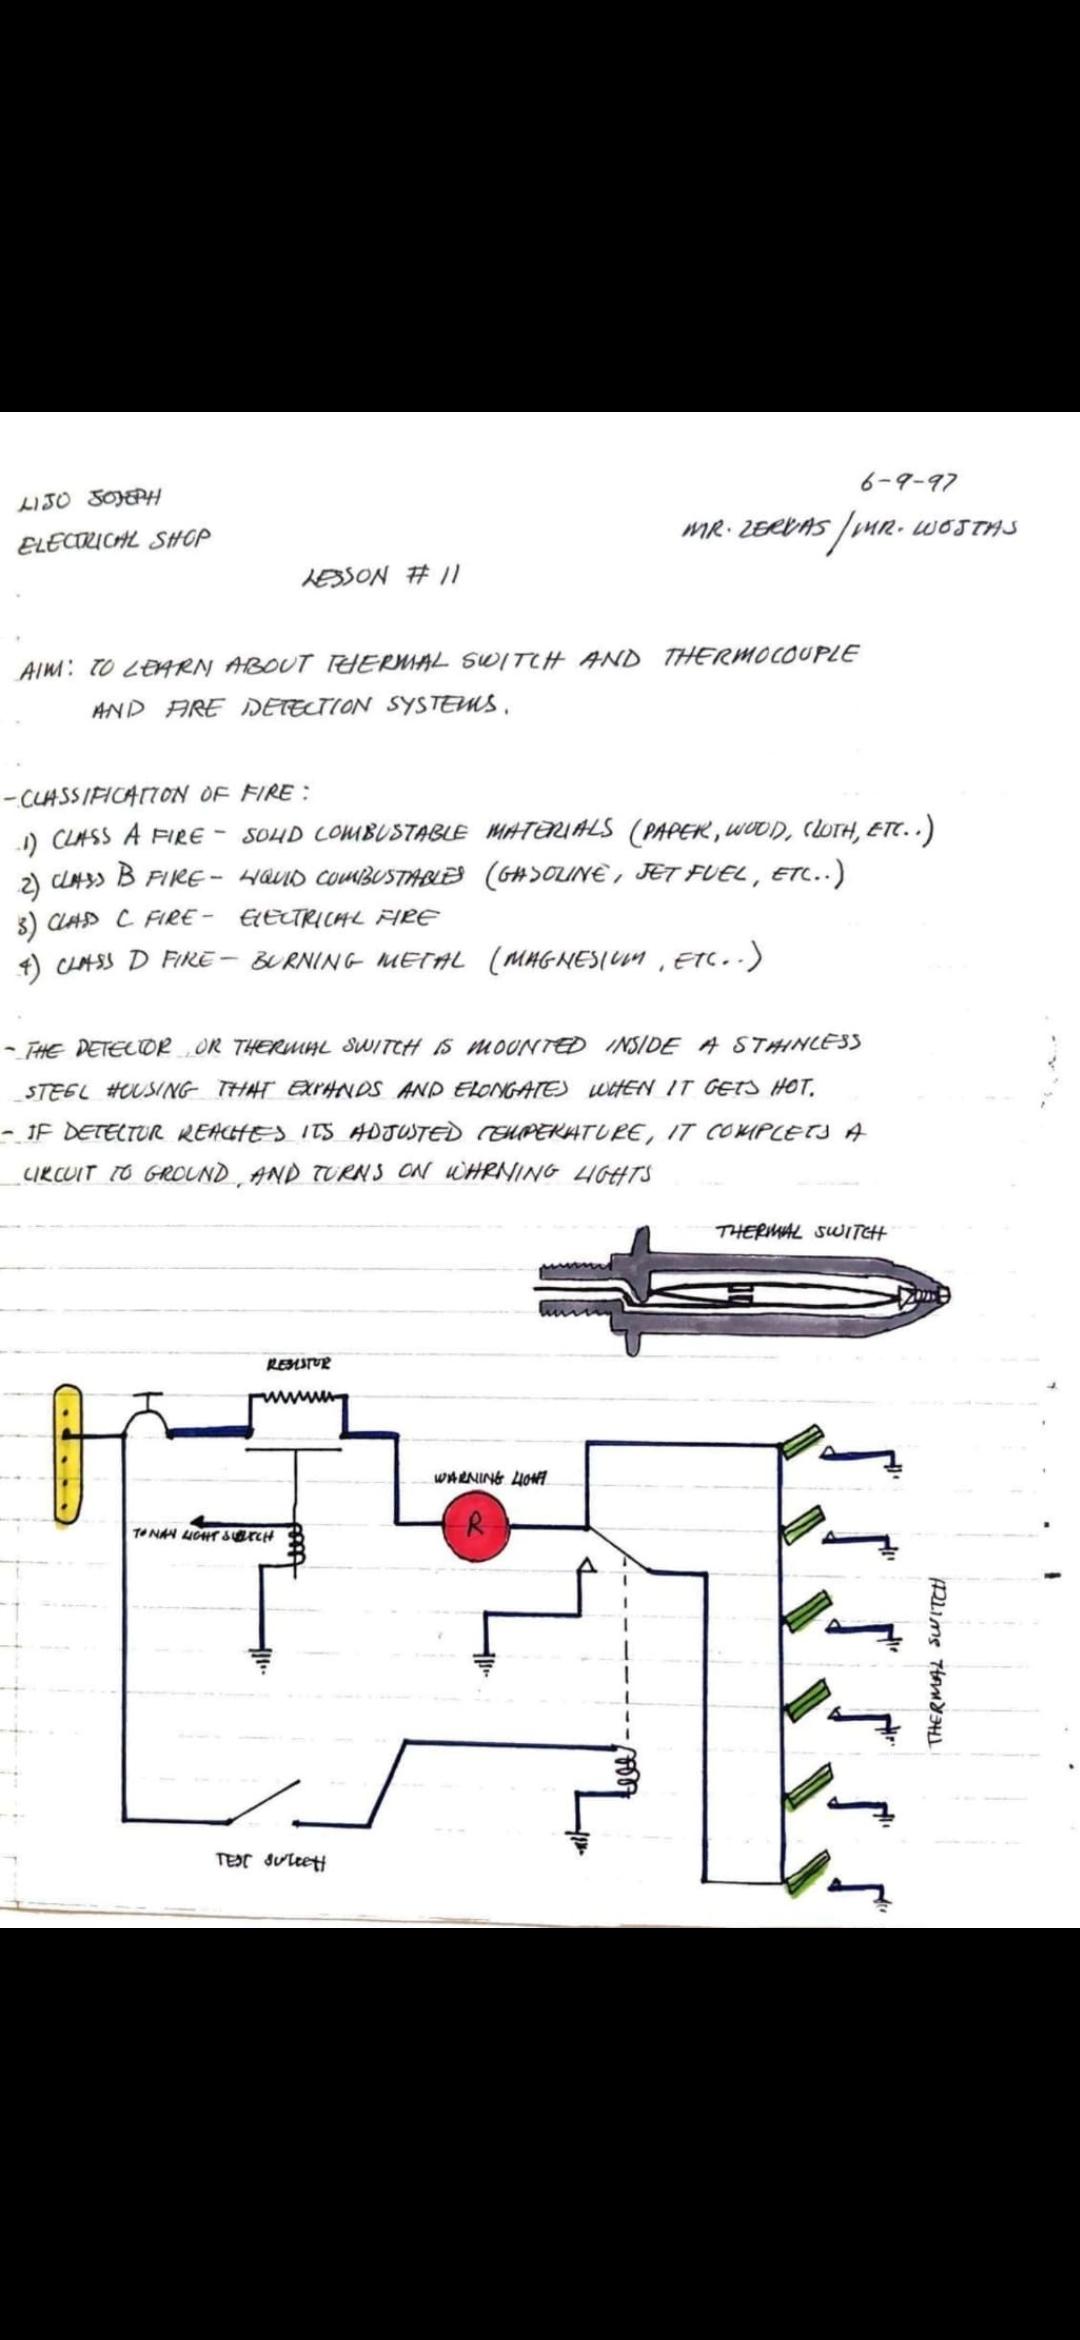 LIJO JOSEPH
ELECTRICAL SHOP
6-9-97
MR. ZERVAS / MR. WOJTAS
LESSON # 11
AIM: TO LEARN ABOUT THERMAL SWITCH AND THERMOCOUPLE
AND FIRE DETECTION SYSTEMS.
- CLASSIFICATION OF FIRE:
1) CLASS A FIRE - SOLID COMBUSTABLE MATERIALS (PAPER, WOOD, CLOTH, ETC..)
2) CLASS B FIRE - LIQUID COMBUSTABLES (GASOLINE, JET FUEL, ETC..)
3) CLASS C FIRE - ELECTRICAL FIRE
4) CLASS D FIRE - BURNING METAL (MAGNESIUM, ETC..)
- THE DETECTOR OR THERMAL SWITCH IS MOUNTED INSIDE A STAINLESS
STEEL HOUSING THAT EXPANDS AND ELONGATES WHEN IT GETS HOT.
- IF DETECTOR REACHES ITS ADJUSTED TEMPERATURE, IT COMPLETS A
CIRCUIT TO GROUND, AND TURNS ON WARNING LIGHTS
THERMAL SWITCH
RESISTOR
WARNING LIGHT
R
TO NAV LIGHT SWITCH
THERMAL SWITCH
TEST SWITCH